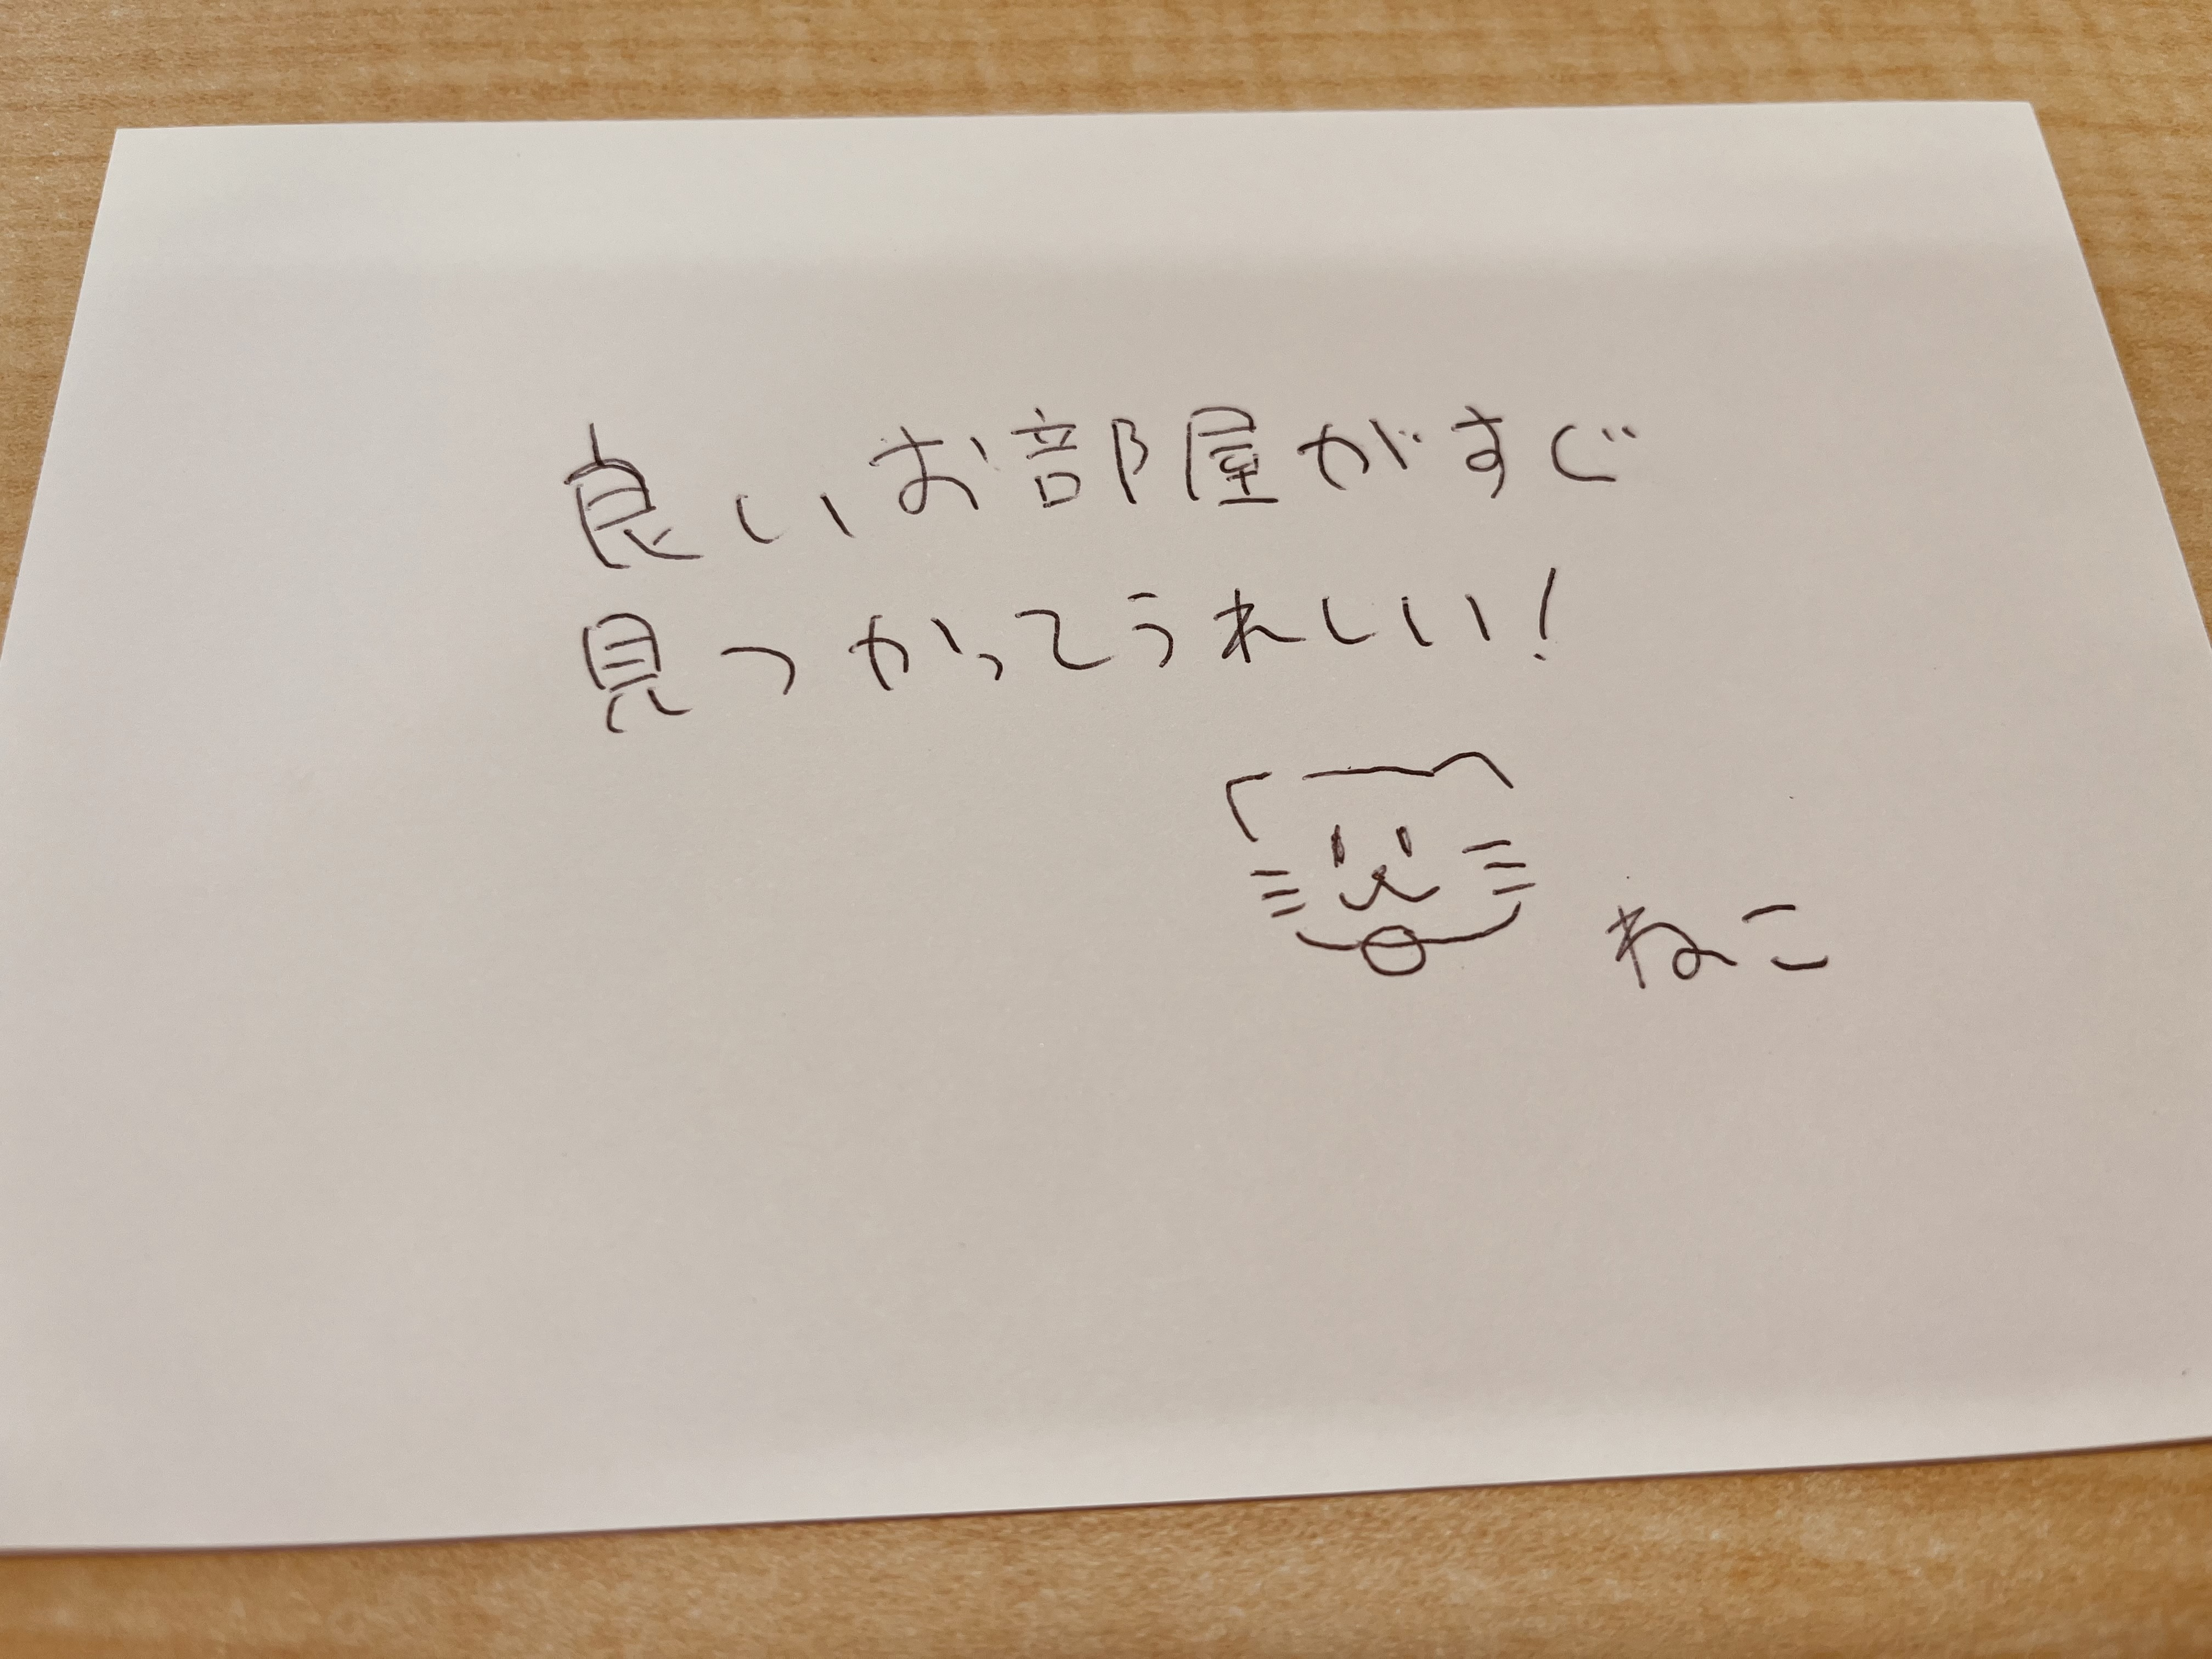 良いお部屋がすぐ
見つかってうれしい!
ねこ